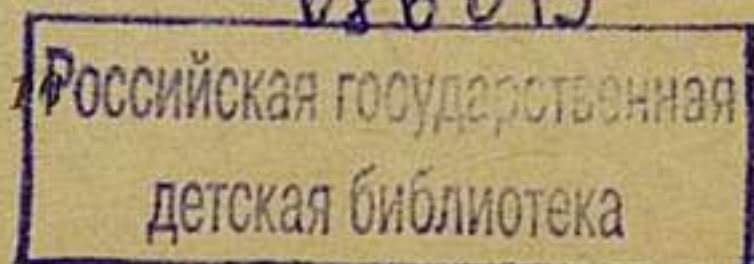 Российская государственная
детская библиотека